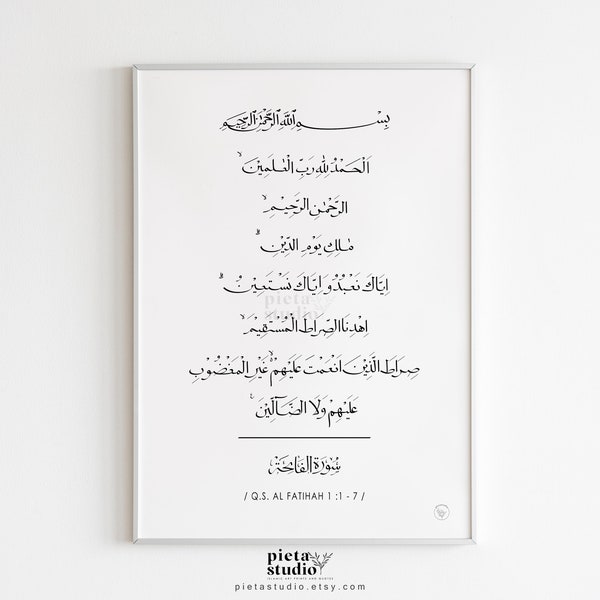 بِسْمِ اللّٰهِ الرَّحْمٰنِ الرَّحِيْمِ
اَلْحَمْدُ لِلّٰهِ رَبِّ الْعٰلَمِيْنَۙ
الرَّحْمٰنِ الرَّحِيْمِۙ
مٰلِكِ يَوْمِ الدِّيْنِۗ
اِيَّاكَ نَعْبُدُ وَاِيَّاكَ نَسْتَعِيْنُۗ
pieta
studio
اِهْدِنَا الصِّرَاطَ الْمُسْتَقِيْمَۙ
صِرَاطَ الَّذِيْنَ اَنْعَمْتَ عَلَيْهِمْ ەۙ غَيْرِ الْمَغْضُوْبِ
عَلَيْهِمْ وَلَا الضَّاۤلِّيْنَ
سُوْرَةُ الْفَاتِحَة
/ Q.S. AL FATIHAH 1 :1 - 7 /
pieta
studio
ISLAMIC ART PRINTS AND QUOTES
pietastudio.etsy.com